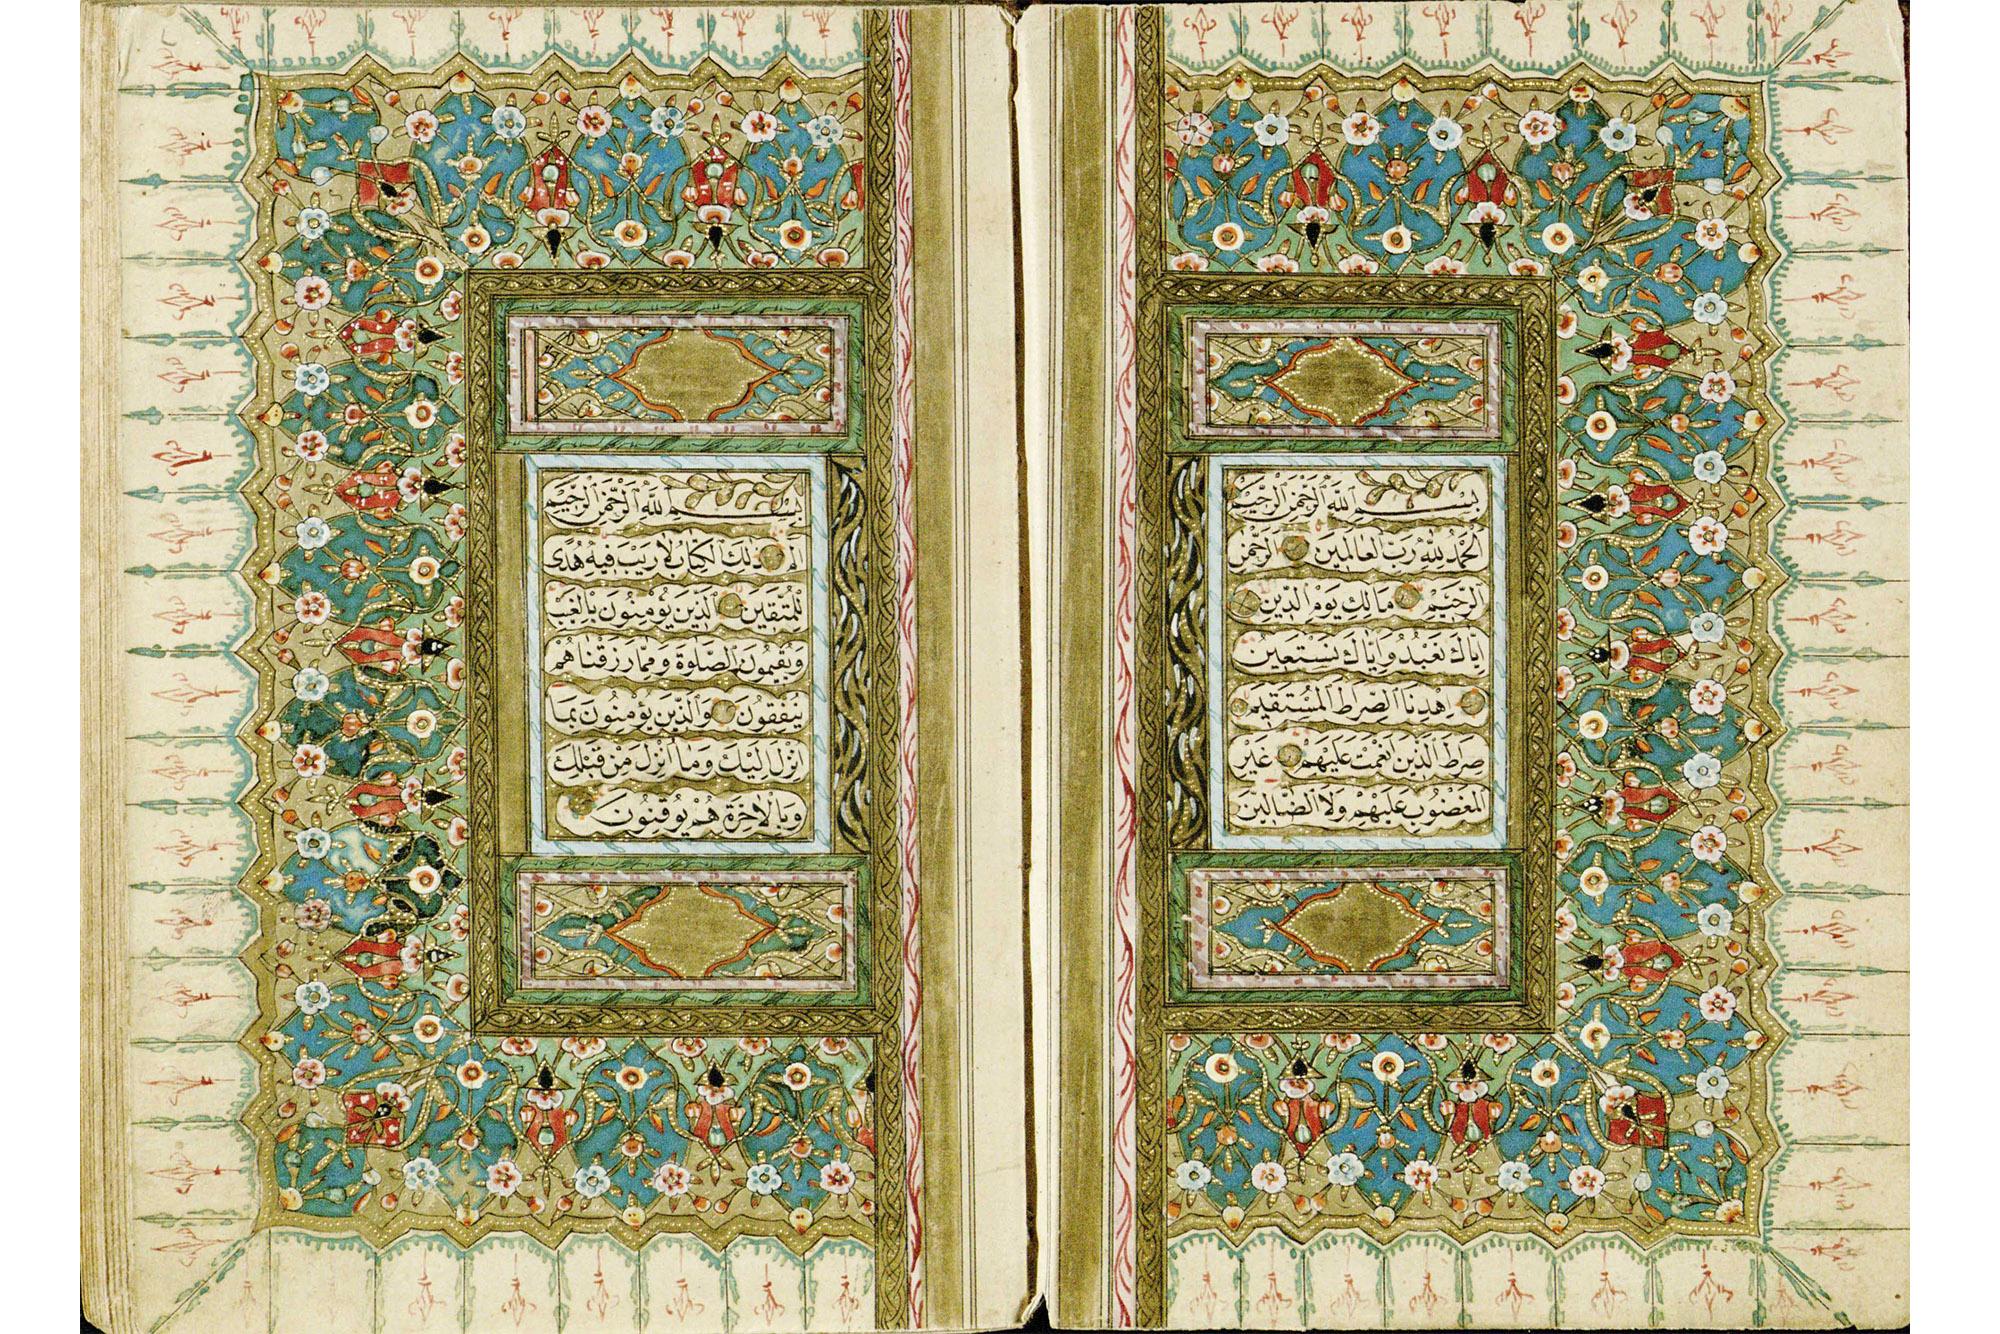 بِسْمِ اللّٰهِ الرَّحْمٰنِ الرَّحِيْمِ
اَلْحَمْدُ لِلّٰهِ رَبِّ الْعَالَمِيْنَ الرَّحْمٰنِ
الرَّحِيْمِ مَالِكِ يَوْمِ الدِّيْنِ
اِيَّاكَ نَعْبُدُ وَاِيَّاكَ نَسْتَعِيْنُ
اِهْدِنَا الصِّرَاطَ الْمُسْتَقِيْمَ
صِرَاطَ الَّذِيْنَ اَنْعَمْتَ عَلَيْهِمْ غَيْرِ
الْمَغْضُوْبِ عَلَيْهِمْ وَلَا الضَّالِّيْنَ
بِسْمِ اللّٰهِ الرَّحْمٰنِ الرَّحِيْمِ
الٓمٓ ذٰلِكَ الْكِتَابُ لَا رَيْبَ فِيْهِ هُدًى
لِلْمُتَّقِيْنَ اَلَّذِيْنَ يُؤْمِنُوْنَ بِالْغَيْبِ
وَيُقِيْمُوْنَ الصَّلٰوةَ وَمِمَّا رَزَقْنَاهُمْ
يُنْفِقُوْنَ وَالَّذِيْنَ يُؤْمِنُوْنَ بِمَا
اُنْزِلَ اِلَيْكَ وَمَا اُنْزِلَ مِنْ قَبْلِكَ
وَبِالْاٰخِرَةِ هُمْ يُوْقِنُوْنَ